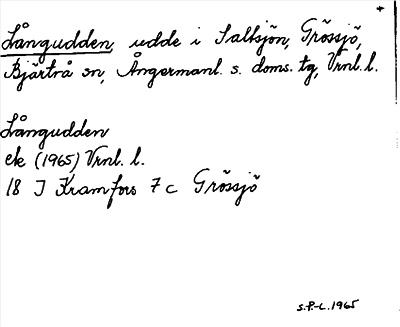 +
Långudden, udde i Saltsjön, Grössjö,
Bjärtrå sn, Ångermanl. s. doms. tg, Vrnl. l.
Långudden
ek (1965) Vrnl. l.
18 J Kramfors 7 c Grössjö
S.P.-L. 1965